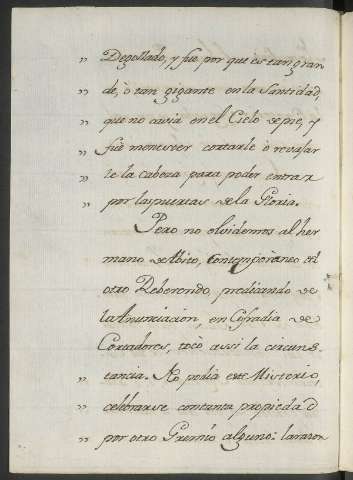 " Degollado, y fue por que es tan gran
" de, ò tan gigante en la Santidad,
" que no cavia en el Cielo de pie, y
" fuè menester cortarle ò revajar
" le la cabeza para poder entrar
" por las puertas de la Gloria.
Pero no olvidemos al her
mano de Avito, Contemporaneo del
otro Reberendo, predicando de
la Anunciacion, en Cofradia de
Cortadores, tocò assi la circuns
" tancia. No podia este Misterio,
" celebrarse con tanta propiedad
" por otro Gremio alguno: la razon